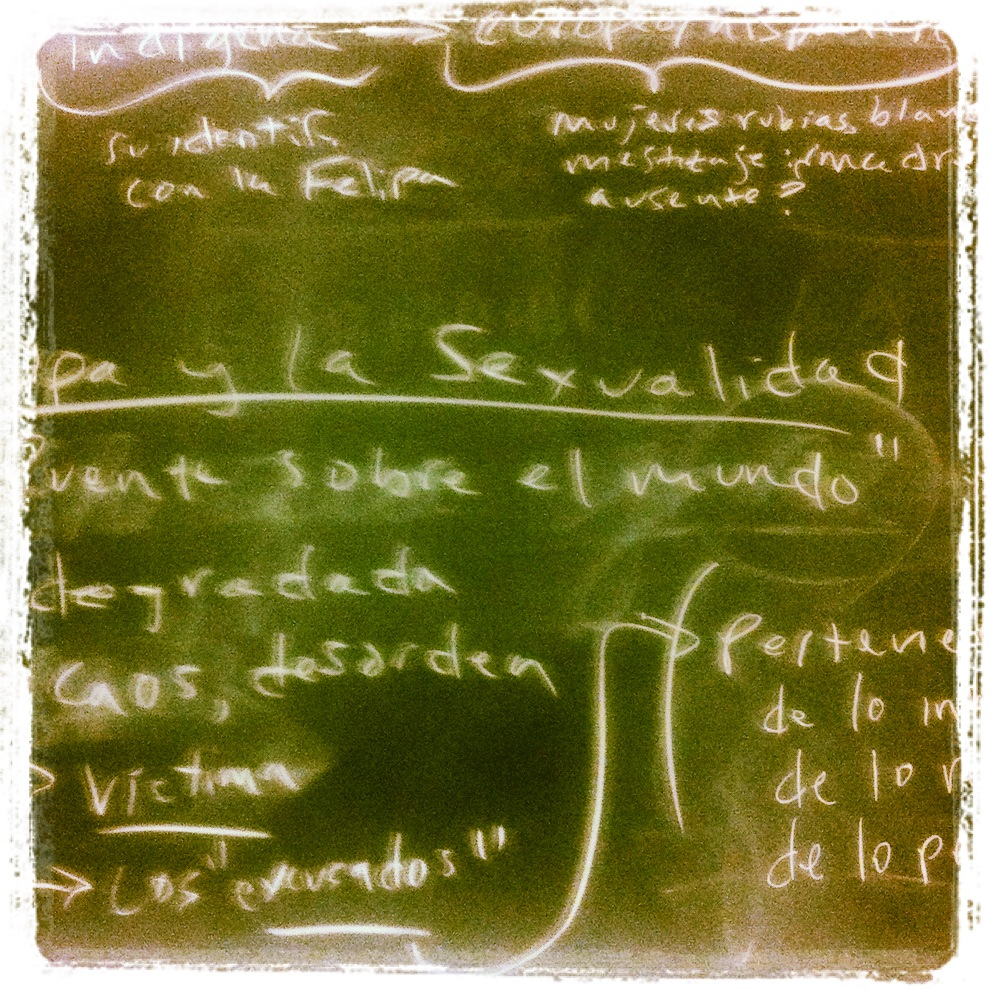 indígena → europ
su identif.
con la Felipa
mujeres rubias, blan
mestizaje
ausente?
pa y la Sexualidad
sobre el mundo"
degradada
Caos, desorden
> Víctima
→ Los
Pertene
de lo in
de lo r
de lo p